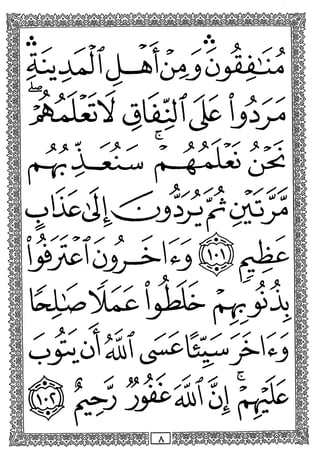 مُنَٰفِقُونَ ۛ وَمِنْ أَهْلِ ٱلْمَدِينَةِ ۛ
مَرَدُوا۟ عَلَى ٱلنِّفَاقِ لَا تَعْلَمُهُمْ ۖ
نَحْنُ نَعْلَمُهُمْ ۚ سَنُعَذِّبُهُم
مَّرَّتَيْنِ ثُمَّ يُرَدُّونَ إِلَىٰ عَذَابٍ
عَظِيمٍ ١٠١ وَءَاخَرُونَ ٱعْتَرَفُوا۟
بِذُنُوبِهِمْ خَلَطُوا۟ عَمَلًا صَٰلِحًا
وَءَاخَرَ سَيِّئًا عَسَى ٱللَّهُ أَن يَتُوبَ
عَلَيْهِمْ ۚ إِنَّ ٱللَّهَ غَفُورٌ رَّحِيمٌ ١٠٢
٨